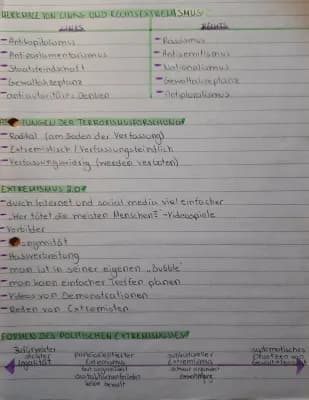 MERKMALE VON LINKS UND RECHTSEXTREMISMUS
LINKS
RECHTS
- Antikapitalismus
- Rassismus
- Antiparlamentarismus
- Antisemitismus
- Staatsfeindschaft
- Nationalismus
- Gewaltakzeptanz
- Gewaltakzeptanz
- antiautoritäres Denken
- Antipluralismus
TUNGEN DER TERRORISMUSFORSCHUNG
- Radikal (am Boden der Verfassung)
- Extremistisch / Verfassungsfeindlich
- Verfassungswidrig (werden verboten)
EXTREMISMUS 2.0
- durch Internet und social media viel einfacher
- „Wer tötet die meisten Menschen?" - Videospiele
- Vorbilder
- onymität
- Hassverbreitung
- man ist in seiner eigenen „bubble"
- man kann einfacher Treffen planen
- Videos von Demonstrationen
- Reden von Extremisten
FORMEN DES POLITISCHEN EXTREMISMUS
Extremismus
subkultureller
Extremismus
systematisches
legalität
keine Gewalt